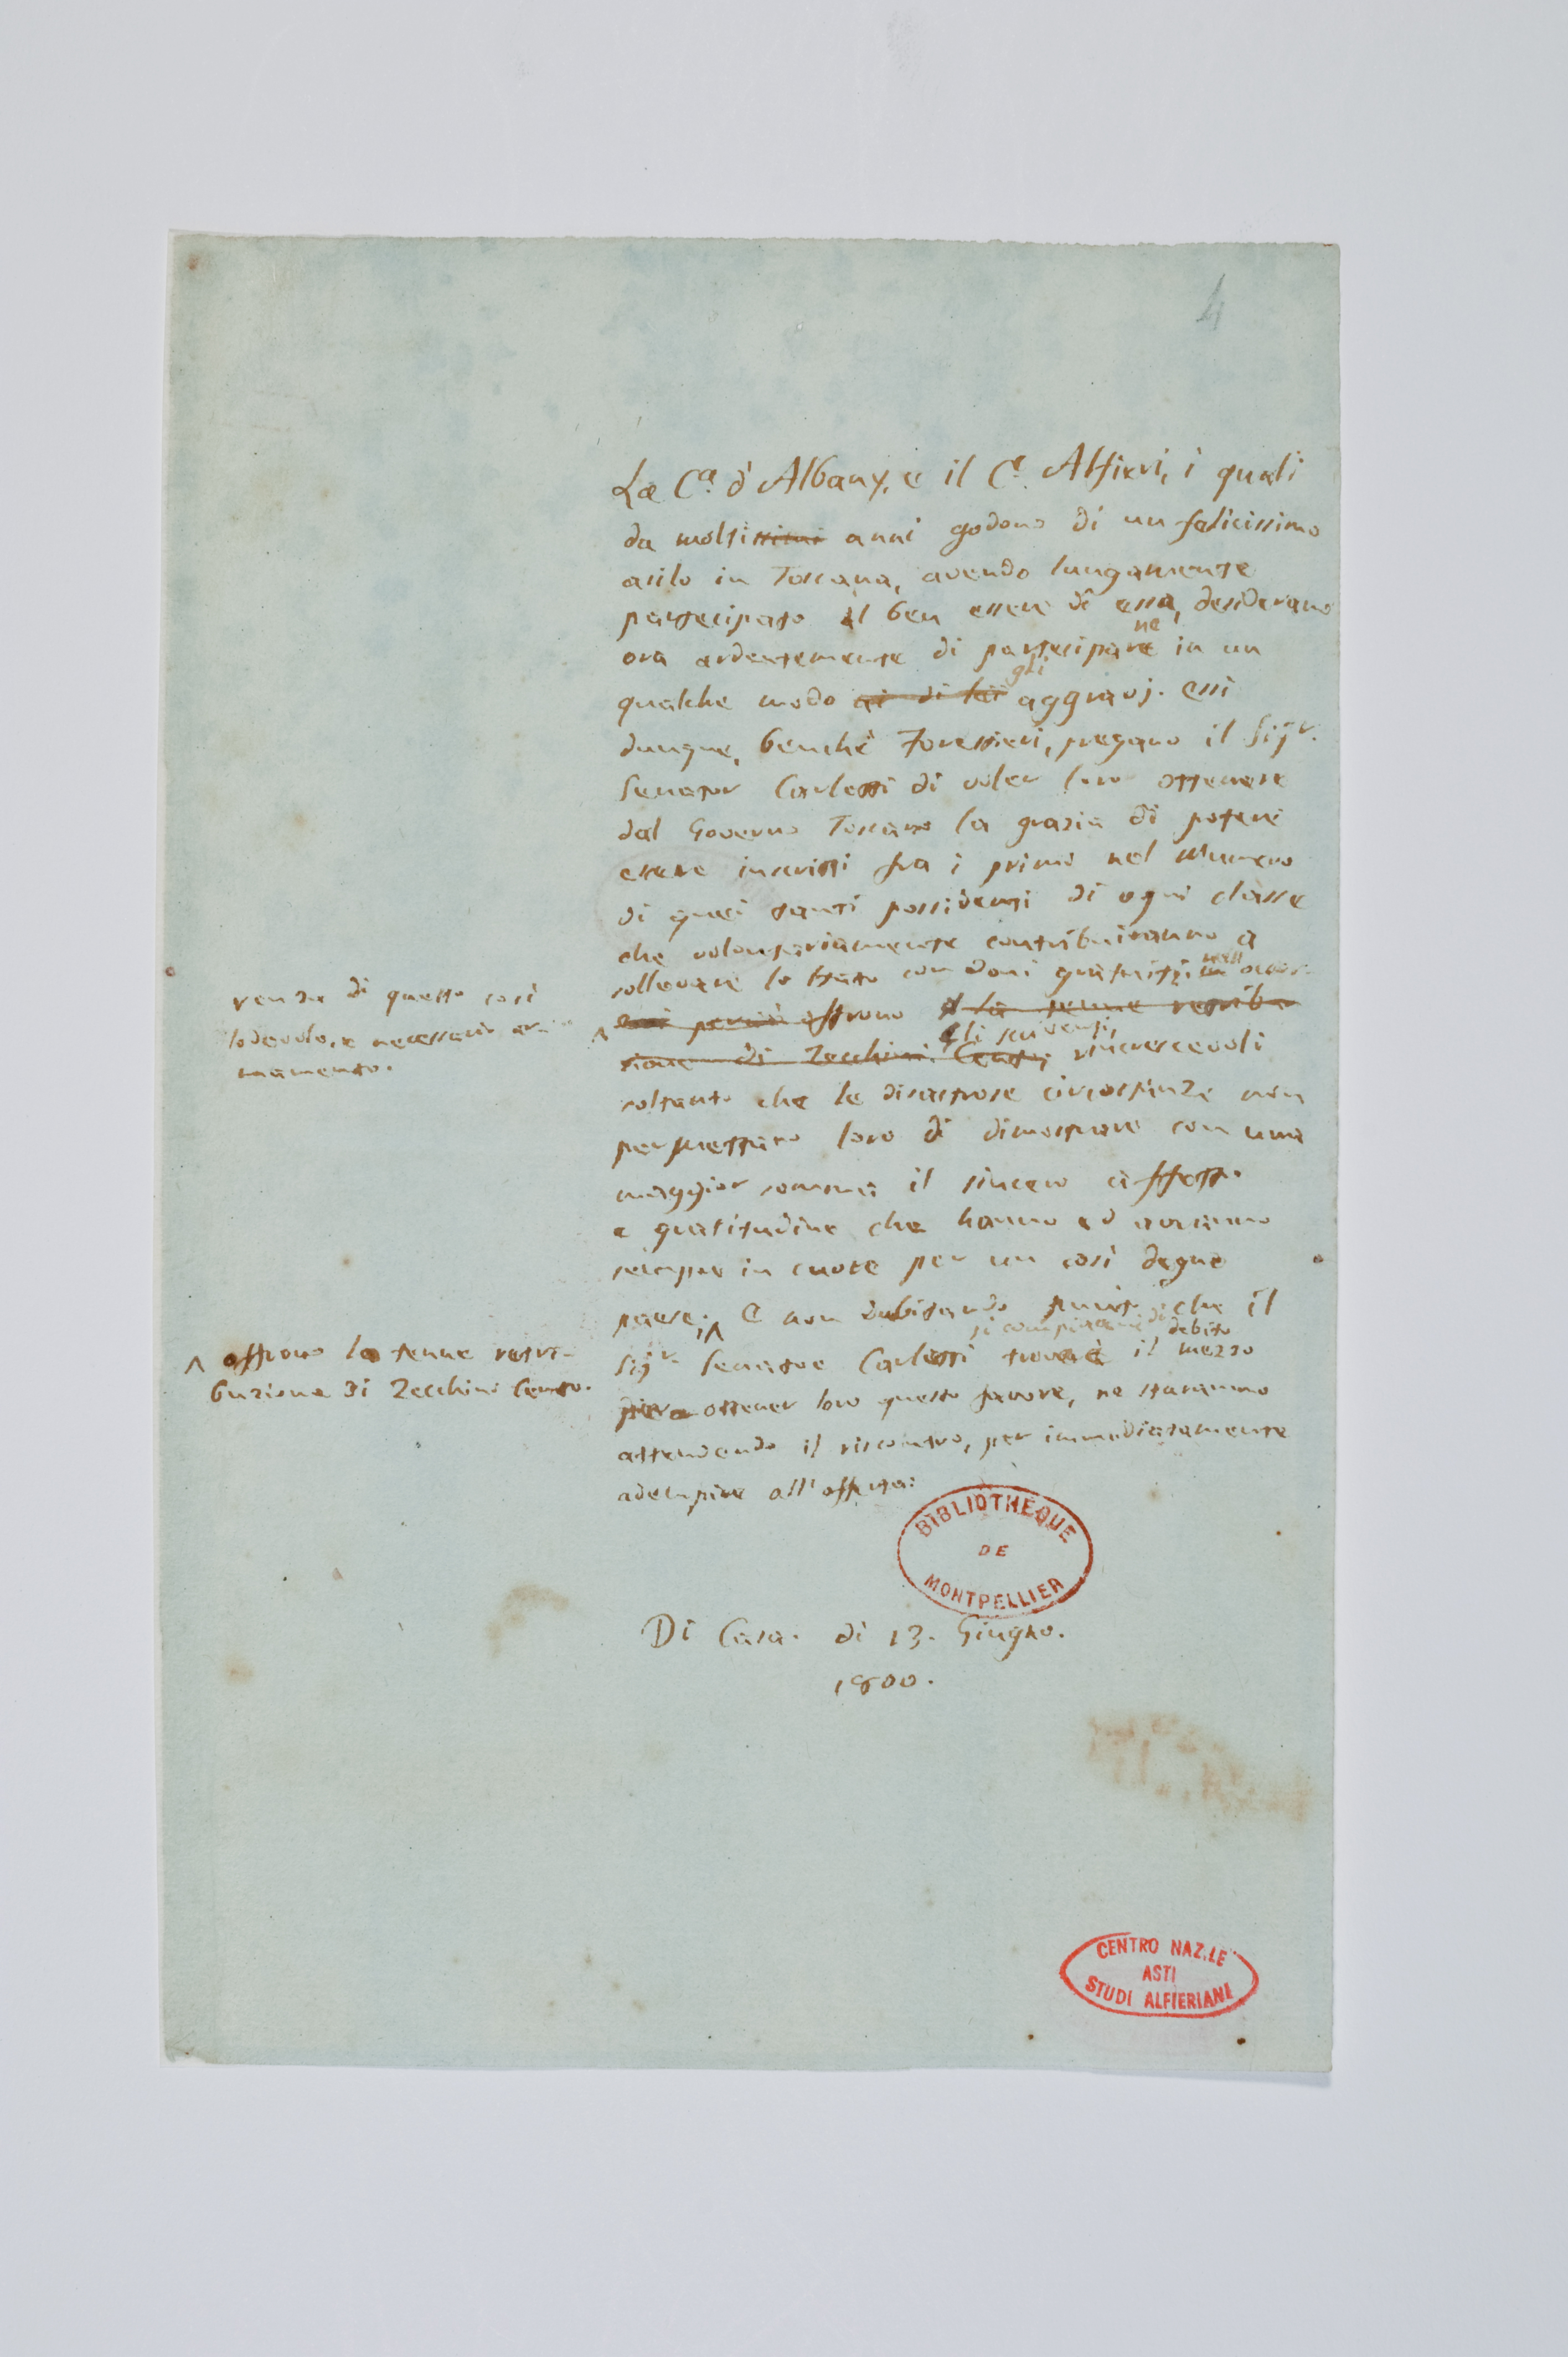 4
La C.a d'Albany, e il C.e Alfieri, i quali
da moltissimi anni godono di un felicissimo
asilo in Toscana, avendo lungamente
partecipato al ben essere di essa, desiderano
ne
ora ardentemente di partecipare in un
gli
qualche modo ai di lei aggravj. Essi
dunque, benchè Forestieri, pregano il Sigr.
Senator Carlotti di voler loro ottenere
dal Governo Toscano la grazia di potere
essere inscritti fra i primi nel Numero
di quei tanti possidenti di ogni classe
che volontariamente contribuiranno a
sollevare lo Stato con doni gratuiti, nell' occor-
renza di questo così
lodevole, e necessario ar-
mamento.
essi perciò offrono la tenue retribu-
Gli scriventi,
zione di Zecchini Cento; rincrescevoli
soltanto che le disastrose circostanze non
permettano loro di dimostrare con una
maggior somma il sincero affetto
e gratitudine che hanno ed avranno
sempre in cuore per un così degno
paese; E non dubitando punto che il
si compiacerà di debito
Sigr. Senatore Carlotti troverà il mezzo
^ offrono la tenue retri-
buzione di Zecchini Cento.
per ottener loro questo favore, ne staranno
attendendo il riscontro, per immediatamente
adempire all'offerta.
BIBLIOTHÈQUE
DE
MONTPELLIER
Di Casa. dì 13. Giugno.
1800.
CENTRO NAZ.LE
ASTI
STUDI ALFIERIANI